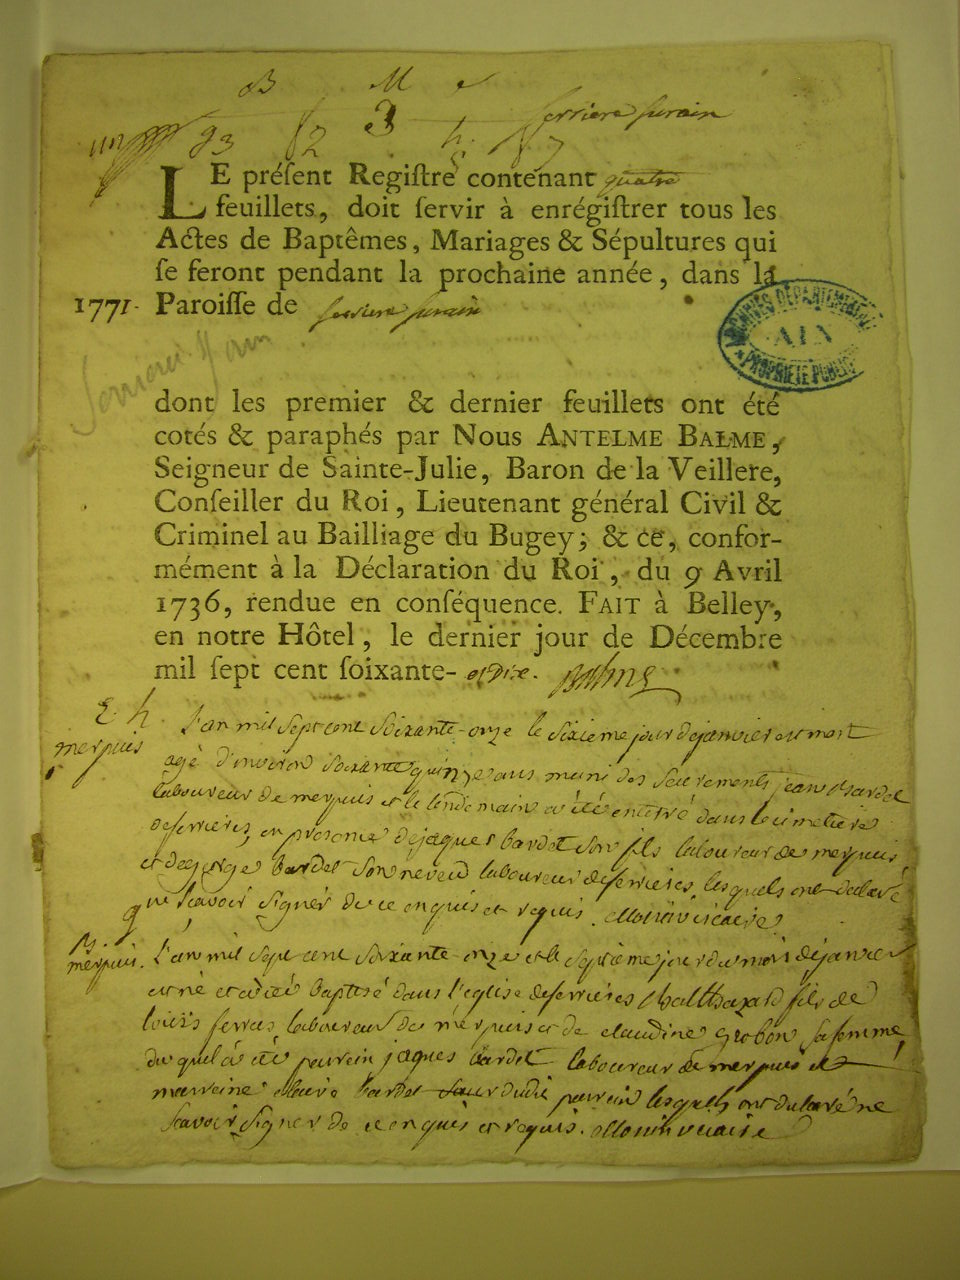 B M
3 ferriere surain
93 82 h. 87
LE préſent Regiſtre contenant quatre
feuillets, doit ſervir à enrégiſtrer tous les
Actes de Baptêmes, Mariages & Sépultures qui
ſe feront pendant la prochaine année, dans la
1771. Paroiſſe de ferriere surain
ARCHIVES DEPARTEMENTALES
AIN
PROPRIETE PUBLIQUE
dont les premier & dernier feuillets ont été
cotés & paraphés par Nous ANTELME BALME,
Seigneur de Sainte-Julie, Baron de la Veillere,
Conſeiller du Roi, Lieutenant général Civil &
Criminel au Bailliage du Bugey; & ce, confor-
mément à la Déclaration du Roi, du 9 Avril
1736, rendue en conſéquence. FAIT à Belley,
en notre Hôtel, le dernier jour de Décembre
mil ſept cent ſoixante- et dix. Balme
E. h. L'an mil sept cent soixante-onze le sixieme jour de janvier est mort
merpuis agé d'inviron soixante quinze ans muni des sacrements jean Bardet
laboureur de merpuis et le lendemain a été enterré dans le cimetiere
de ferrieres, en presence de jaques bardet son fils laboureur de merpuis
et de george bardet son neveu laboureur de ferrieres, lesquels ont declaré
ne sçavoir signer de ce enquis et requis. Monin vicaire
B. L'an mil sept cent soixante-onze et le septiemejour du mois de janvier
merpuis. est né et a été baptisé dans l'eglise de ferrieres Balthazard fils de
louis ferras laboureur de merpuis et de claudine Grobon sa femme,
du quel a été parrein jaques bardet laboureur de merpuis et
marreine bardet sœur dudit parrein lesquels ont declaré ne
sçavoir signer de ce enquis et requis. Monin vicaire